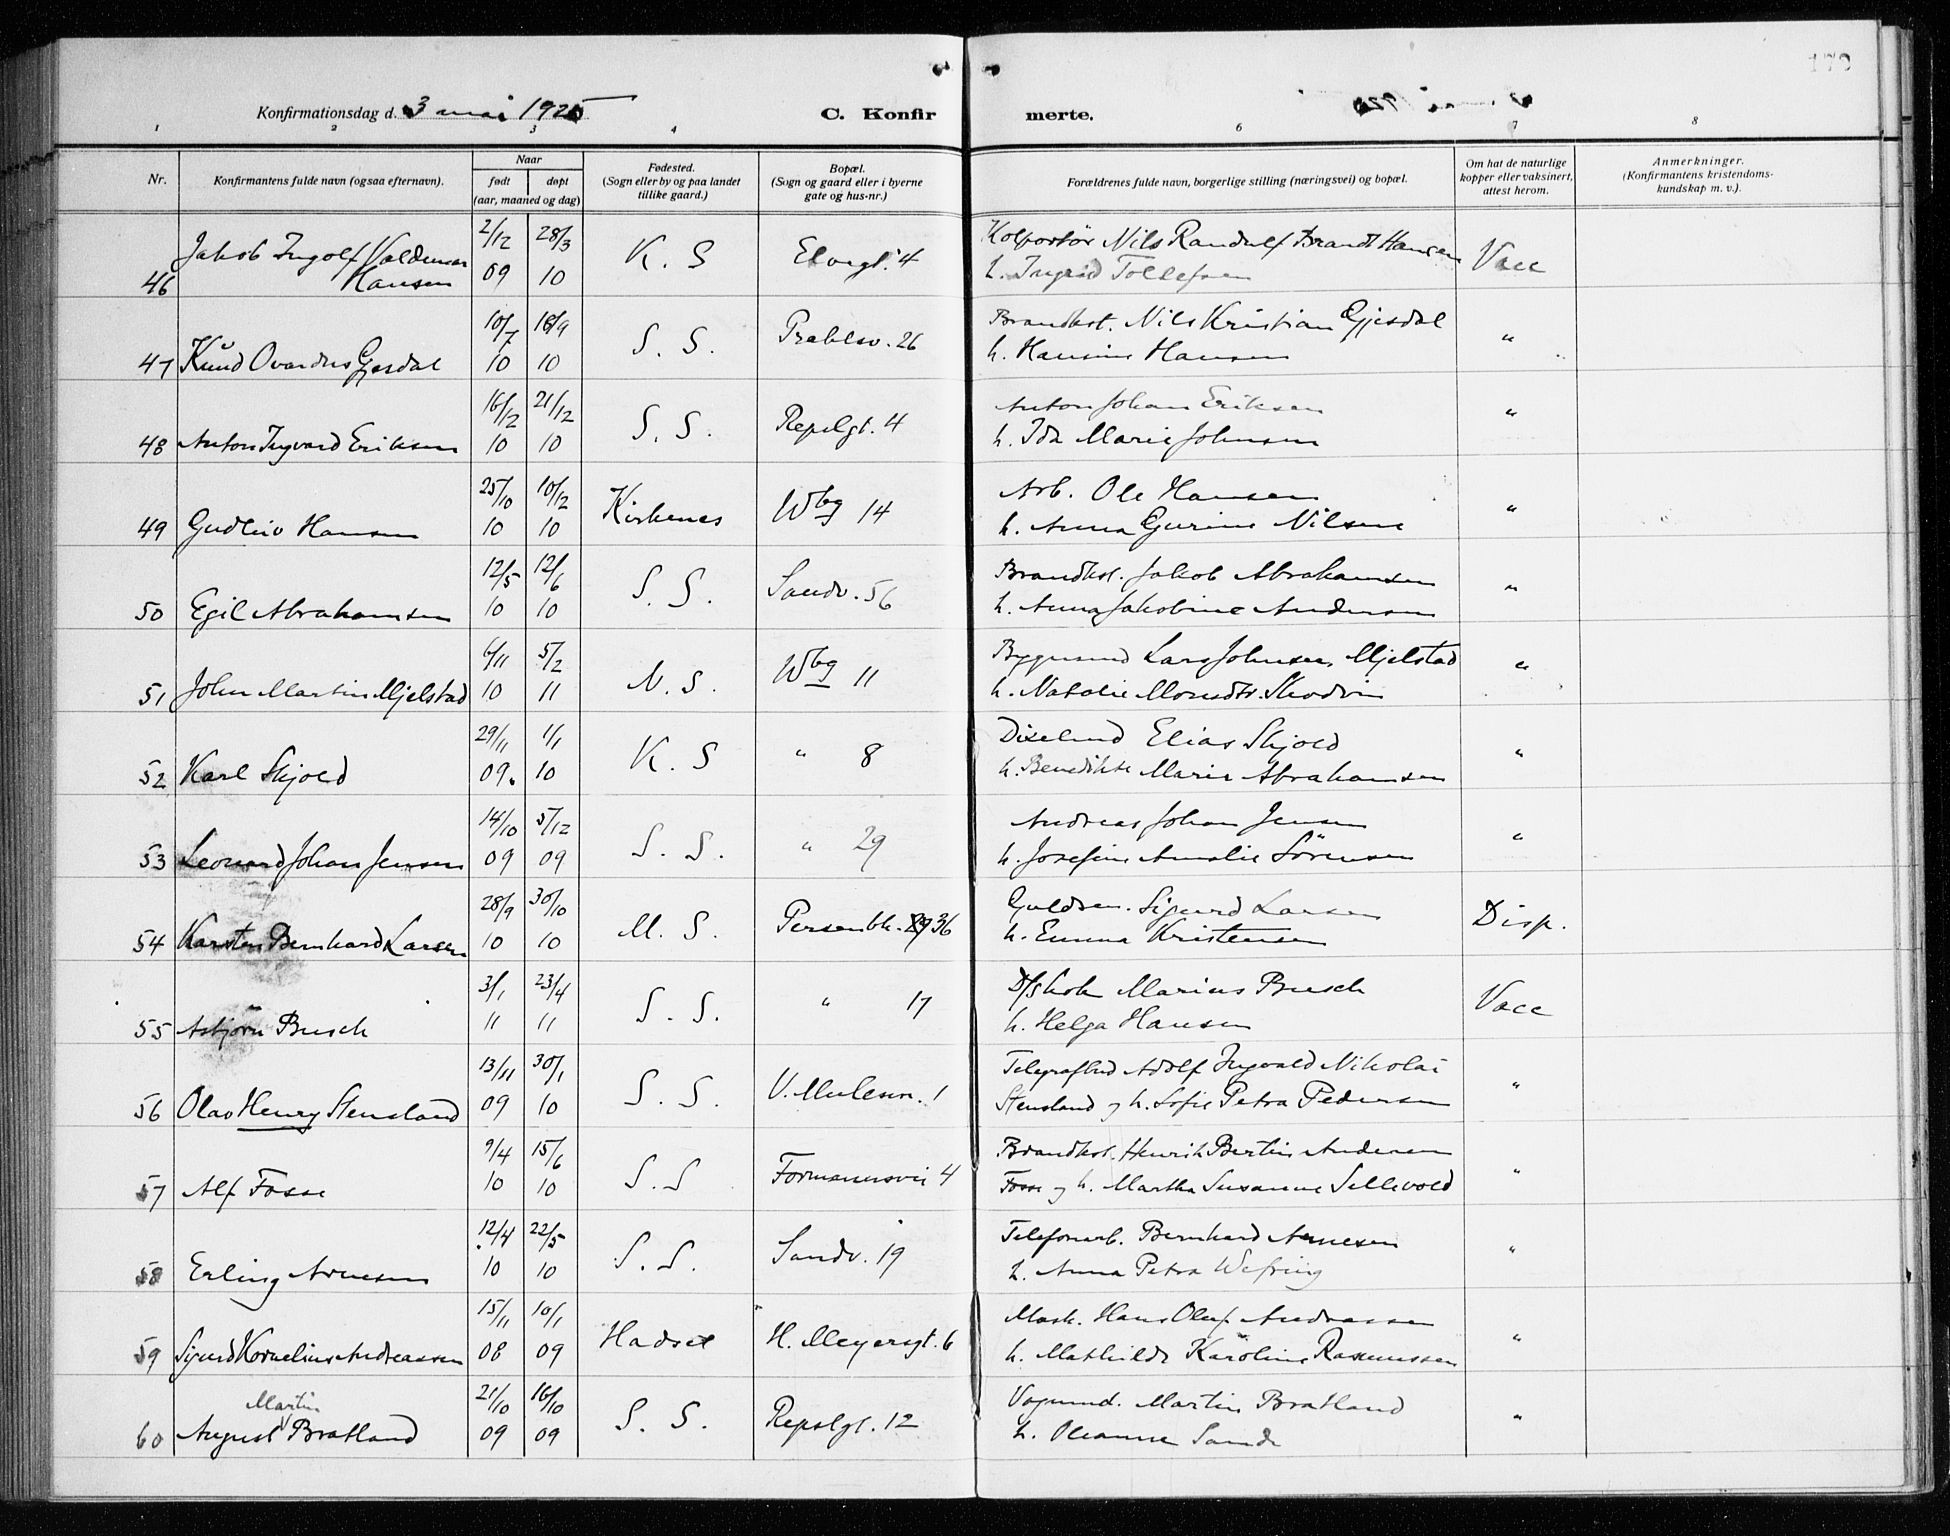 170
Konfirmationsdag d. 3 mai 1925
C. Konfirmerte.
1 2 3 4 6 7 8
Nr.
Konfirmantens fulde navn (ogsaa efternavn).
Naar
født
døpt
(aar, maaned og dag)
Fødested.
(Sogn eller by og paa landet
tillike gaard.)
Bopæl.
(Sogn og gaard eller i byerne
gate og hus-nr.)
Forældrenes fulde navn, borgerlige stilling (næringsvei) og bopæl.
Om hat de naturlige
kopper eller vaksinert,
attest herom.
Anmerkninger.
(Konfirmantens kristendoms-
kundskap m. v.).
Jakob Ingolf Valdemar 2/12 28/3 K. S Elvegt. 4 Kolportør Nils Randulf Brandt Hansen Vacc
46 Hansen 09 10 h. Ingrid Tollefsen
10/7 18/9 S. S. Prahlsv. 26 Brandkst. Nils Kristian Gjesdal "
47 Knud Ovardus Gjesdal 10 10 h. Hansine Hansen
16/12 21/12 S. S. Repslgt. 4 Anton Johan Eriksen "
48 Anton Ingvard Eriksen 10 10 h. Ida Marie Johnsen
25/10 10/12 Kirkenes Wbg 14 Arb. Ole Hansen "
49 Gudleiv Hansen 10 10 h. Anna Gurine Nilsene
12/5 12/6 S. S. Sandv. 56 Brandkst. Jakob Abrahamsen "
50 Egil Abrahamsen 10 10 h. Anna Jakobine Andersen
6/11 5/2 N. S. Wbg 11 Bygmund Lars Johnsen Mjelstad "
51 John Martin Mjelstad 10 11 h. Natalie Monsdtr. Skodvin
29/11 1/1 K. S " 8 Elias Skjold "
52 Karl Skjold 09. 10 h. Benedikte Marie Abrahamsen
14/10 5/12 S. S. " 29 Andreas Johan Jensen "
53 Leonard Johan Jensen 09 09 h. Josefine Amalie Sörensen
28/9 30/10 M. S. Persenbk. 36 Guldsm. Sigurd Larsen Disp.
54 Karsten Bernhard Larsen 10 10 h. Emma Kristensen
3/1 23/4 S. S. " 17 D/skok Marius Busch Vacc
55 Asbjørn Busch 11 11 h. Helga Hansen
13/11 30/1 S. S. V. Mulesm. 1 Telegrafbud Adolf Ingvald Nikolai "
56 Olav Henry Stensland 09 10 Stensland og h. Sofie Petra Pedersen
9/4 15/6 S. S. Formannsvei 4 Brandkst. Henrik Bertin Andersen "
57 Alf Fosse 10 10 Fosse og h. Martha Susanne Sellevold
12/4 22/5 S. S. Sandv. 19 Telefonarb. Bernhard Arnesen "
58 Erling Arnesen 10 10 h. Anna Petra Wefring
15/11 10/1 Hadsel H. Meyersgt. 6 Mask. Hans Oluf Andreassen "
59 Sigurd Kornelius Andreassen 08 09 h. Mathilde Karoline Rasmussen
Martin 21/10 16/10 S. S. Repslgt. 12 Vognmd. Martin Bratland "
60 August Bratland 09 09 h. Oleanne Sande